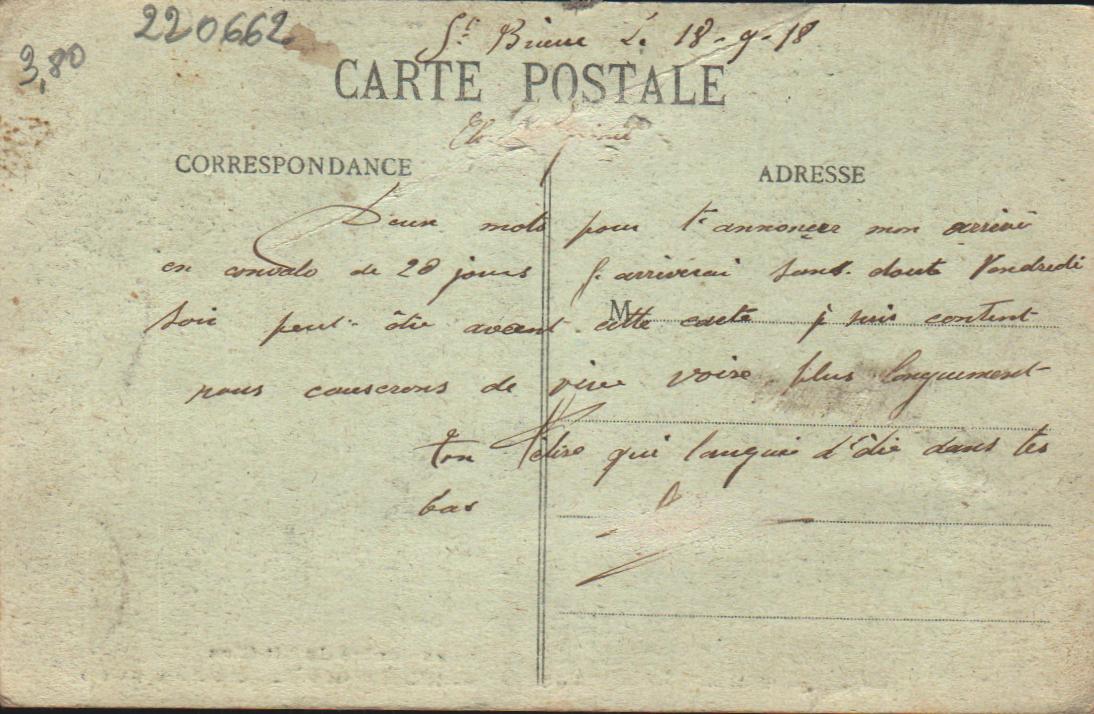 220662
3,80
St Brieuc Le 18-9-18
CARTE POSTALE
CORRESPONDANCE
ADRESSE
Deux mots pour t'annoncer mon arrivé
en convalo de 20 jours j'arriverai sans doute Vendredi
soir peut-être avant cette carte j suis content
M
nous causerons de vive voire plus longuement
ton qui languie d'être dans tes
bas